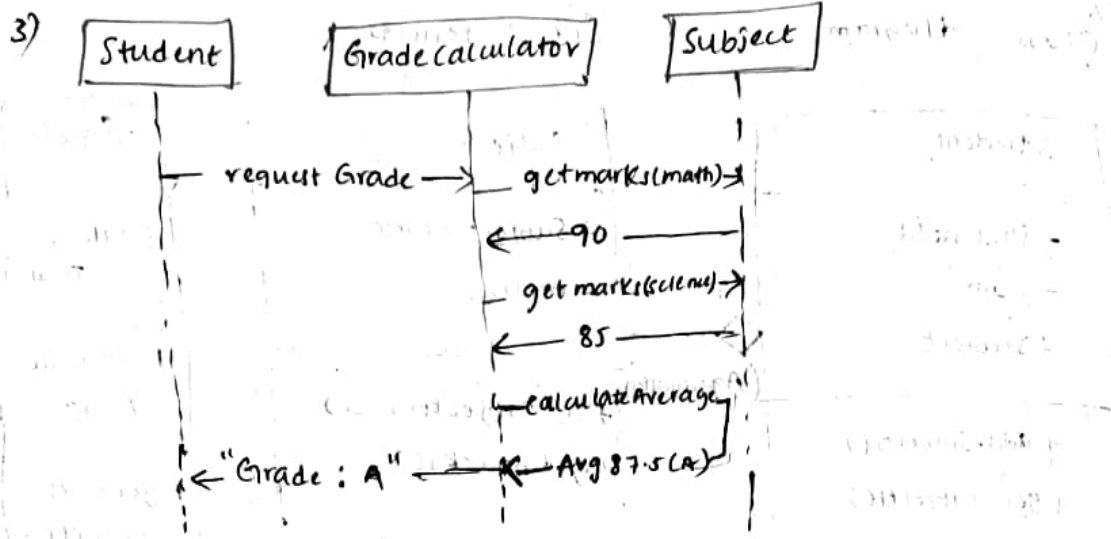 3)
Student
Gradecalculator
Subject
request Grade
getmarks(math)
90
getmarks(science)
85
calculateAverage
Avg 87.5(A)
"Grade : A"